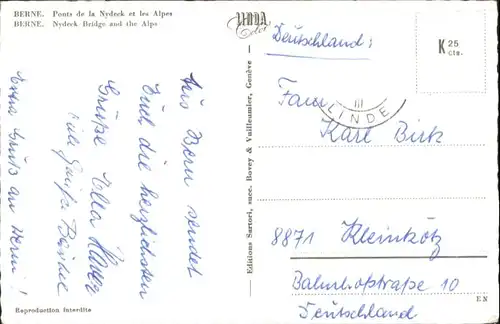 BERNE. Ponts de la Nydeck et les Alpes
BERNE. Nydeck Bridge and the Alps
Aus Bern sendet
Euch die herzlichsten
Grüße Ella
viele Grüße
Extra Gruß an Herrn!
Reproduction interdite
Editions Sartori, succ. Bovey & Vuilleumier, Genève
LINDA
Color
K 25
cts.
III
LINDE
Deutschland:
Fam
Karl Birk
8871 Kleinkötz
Bahnhofstraße 10
Deutschland
EN